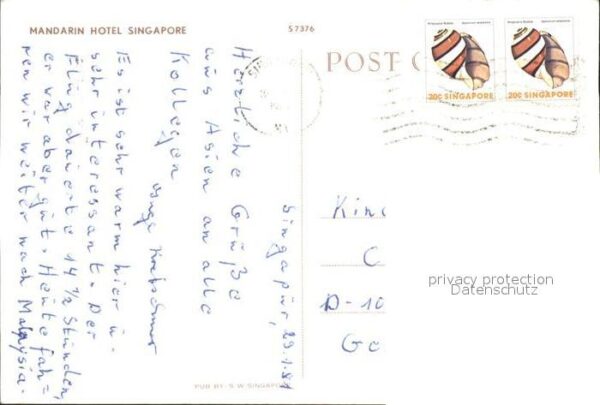 MANDARIN HOTEL SINGAPORE
S7376
POST C
20C SINGAPORE
20C SINGAPORE
Singapur, 29.1.81
Herzliche Grüße
aus Asien an alle
Kollegen
Es ist sehr warm hier u.
sehr interessant. Der
Flug dauerte 14 1/2 Stunden,
er war aber gut. Heute fah=
ren wir weiter nach Malaysia.
Kin
C
D-10
Ge
privacy protection
Datenschutz
PUB BY: S.W. SINGAPO